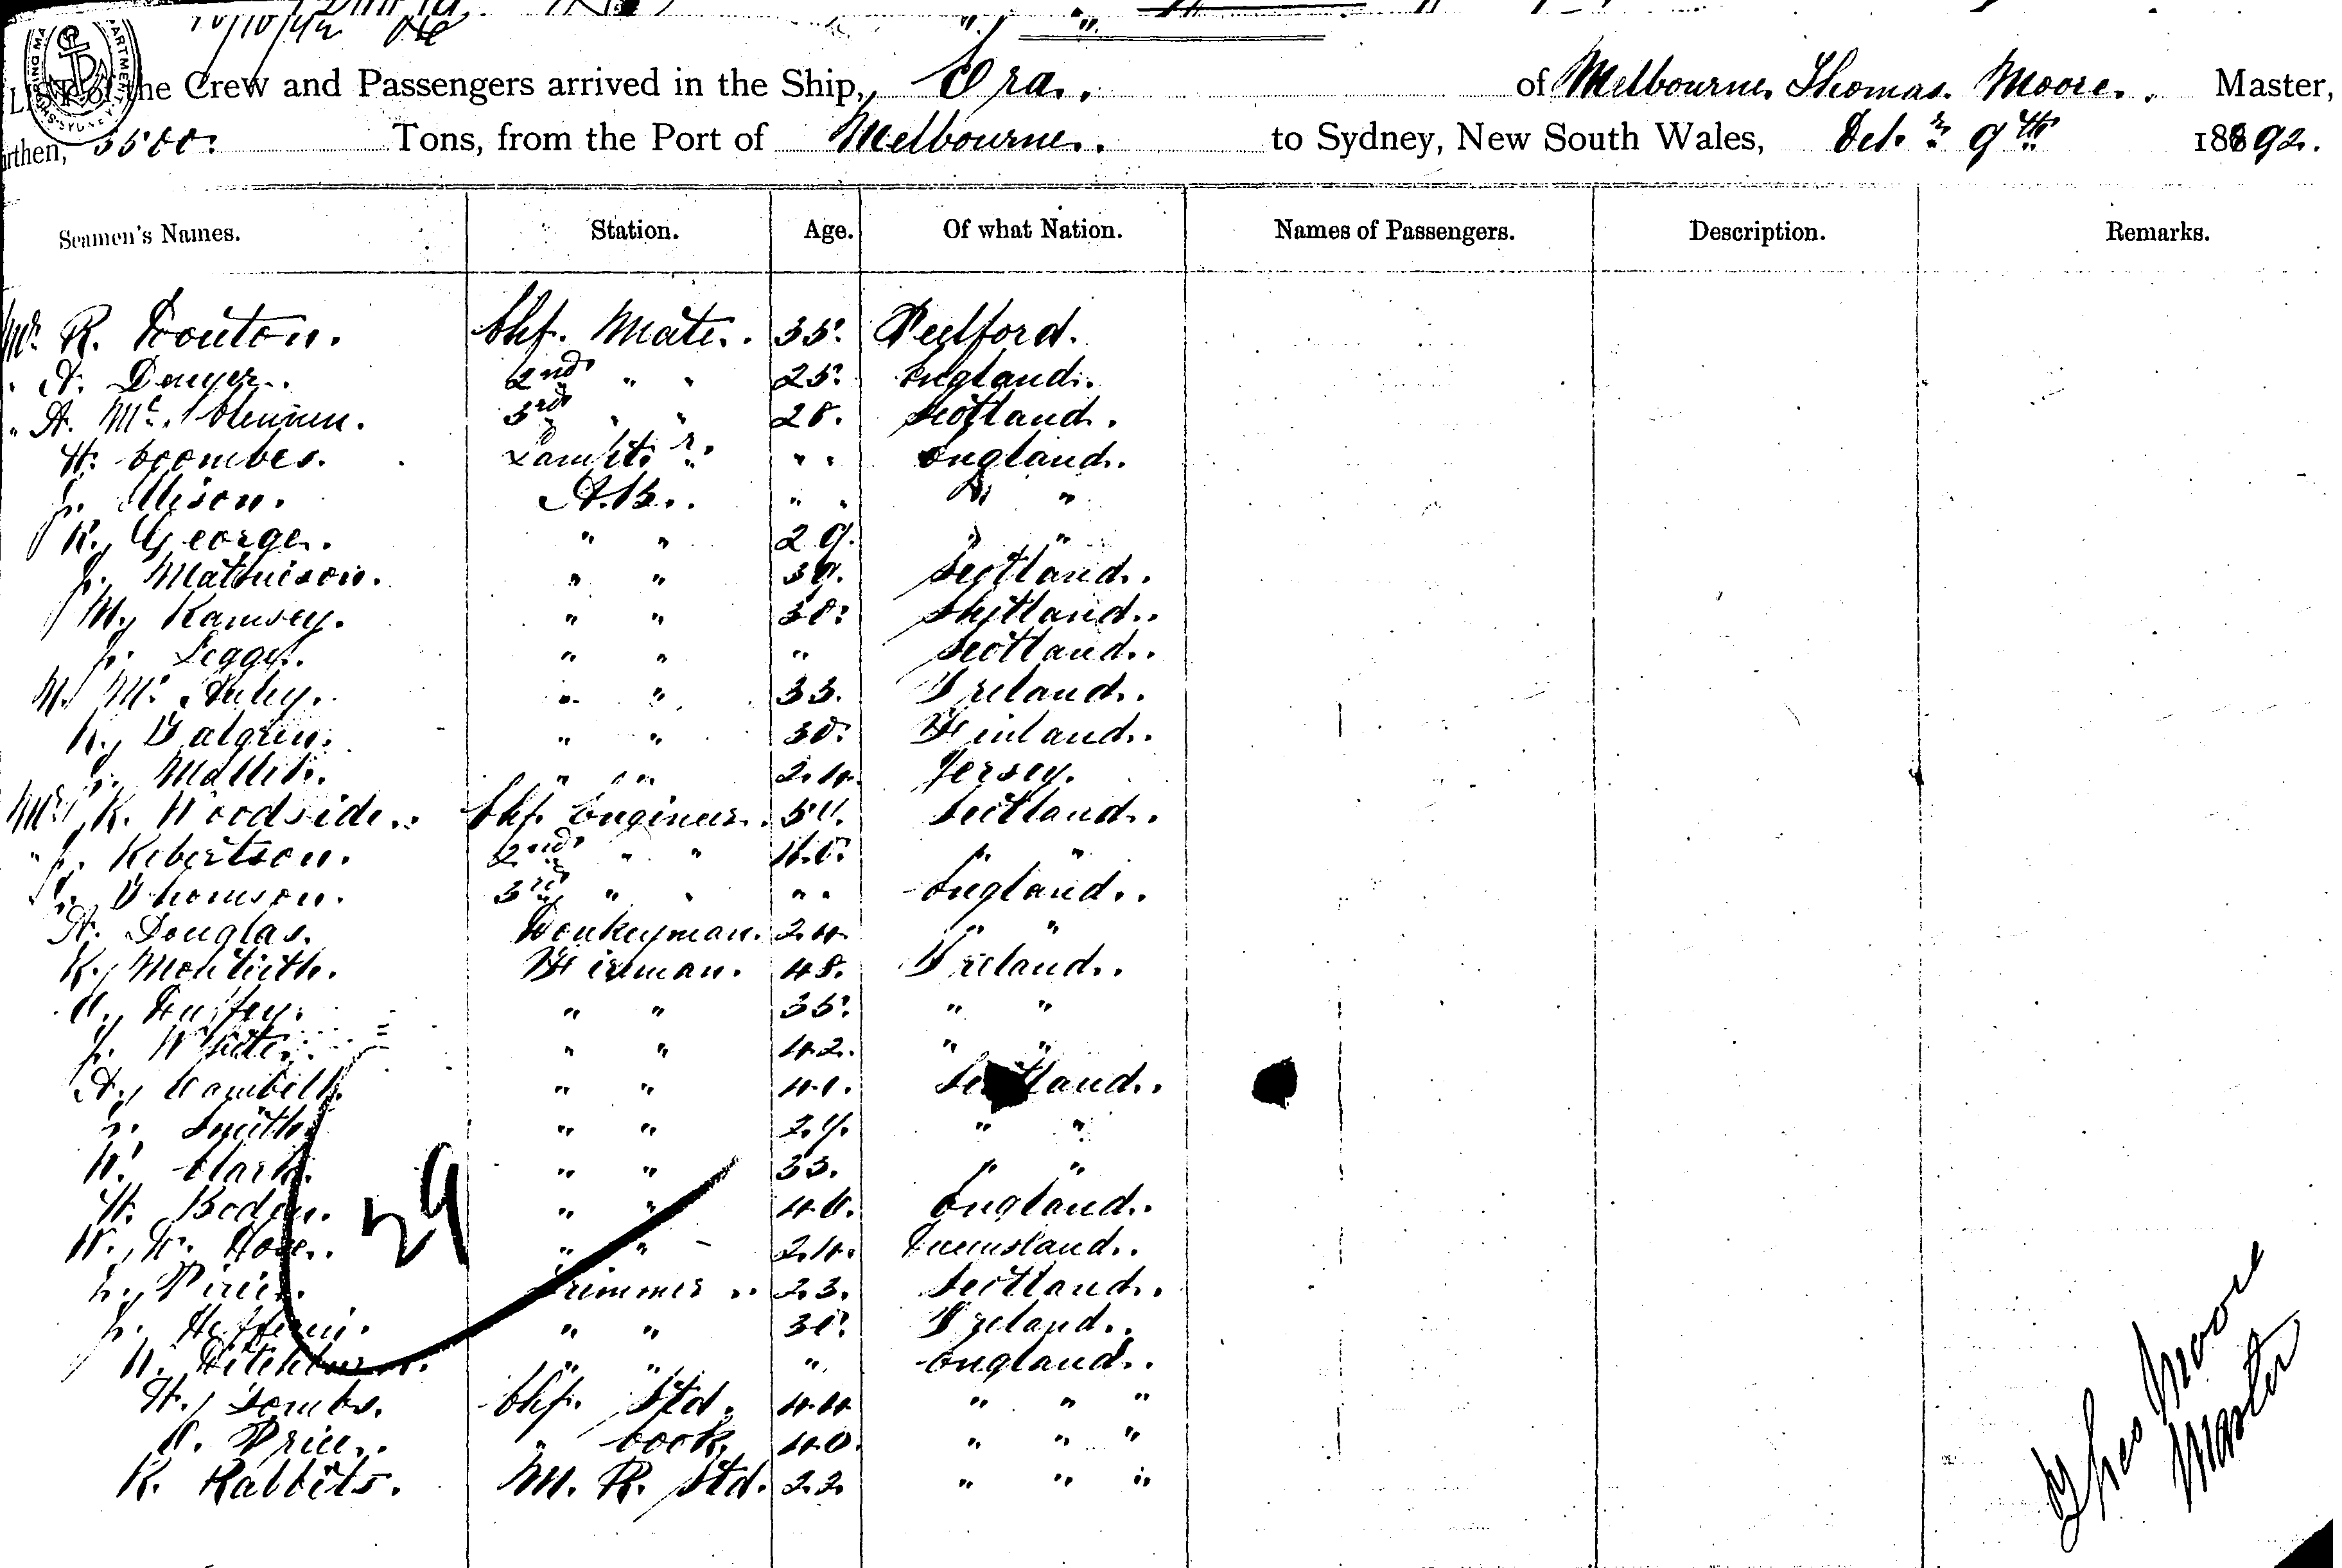 10/10/92
List of the Crew and Passengers arrived in the Ship, Era. of Melbourne, Thomas Moore. Master,
Burthen, 3500. Tons, from the Port of Melbourne. to Sydney, New South Wales, Octr 9th 1892.
Seamen's Names. Station. Age. Of what Nation. Names of Passengers. Description. Remarks.
Mr. R. Bouton. Chf. Mate. 35. Bedford.
" 2nd " " 25. England.
" A. Mc. 3rd " " 28. Scotland.
H. Coombes. Lampt. r. " " England.
J. Alison. A.B. " " " "
R. George. " " 29. " "
J. Mathieson. " " 39. Scotland.
M. Ramsey. " " 38. Shetland.
J. Legge. " " " Scotland.
M. Mc. Auley. " " 33. Ireland.
K. Dalgren. " " 30. Finland.
J. Mallet. " " " 24. Jersey.
Mr. R. Woodside. Chf. Engineer. 50. Scotland.
" J. Robertson. 2nd " " 40. " "
Thomson. 3rd " " " " England.
A. Douglas. Donkeyman. 24. " "
R. Montieth. Fireman. 48. Ireland.
Duffey. " " 35. " "
J. White. " " 42. " "
A. Cambell. " " 40. Scotland.
J. Smith. " " 27. " "
W. Clark. " " 33. " "
H. Boden. " " 40. England.
29
W. W. " " 24. Queensland.
J. Pirie. Trimmer 23. Scotland.
J. Heffernin. " " 30. Ireland.
W. Ditchburn. " " " England.
H. Tombs. Chf. Std. 44 " " "
Price. " Cook. 40. " " "
R. Rabbits. M. R. Std. 22 " " "
Thos Moore
Master